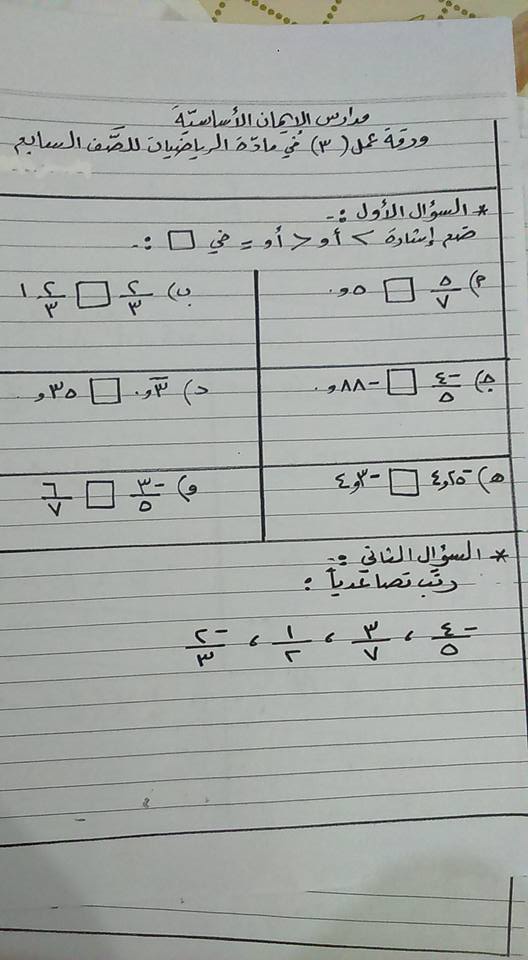 مدارس الإيمان الأساسيّة
ورقة عمل (٣) في مادّة الرياضيات للصّف السابع
* السؤال الأول :-
ضع إشارة > أو < أو = في □ :-
أ) ٥/٧ □ ٥و٠
ب) ٢/٣ □ ١ ٢/٣
ج) -٤/٥ □ -٨٨و٠
د) ٣̅و٠ □ ٣٥و
هـ) -٢٥و٤ □ -٣و٤
و) -٣/٥ □ ٦/٧
* السؤال الثاني :-
رتّب تصاعدياً :
-٤/٥ ، ٣/٧ ، ١/٢ ، -٢/٣